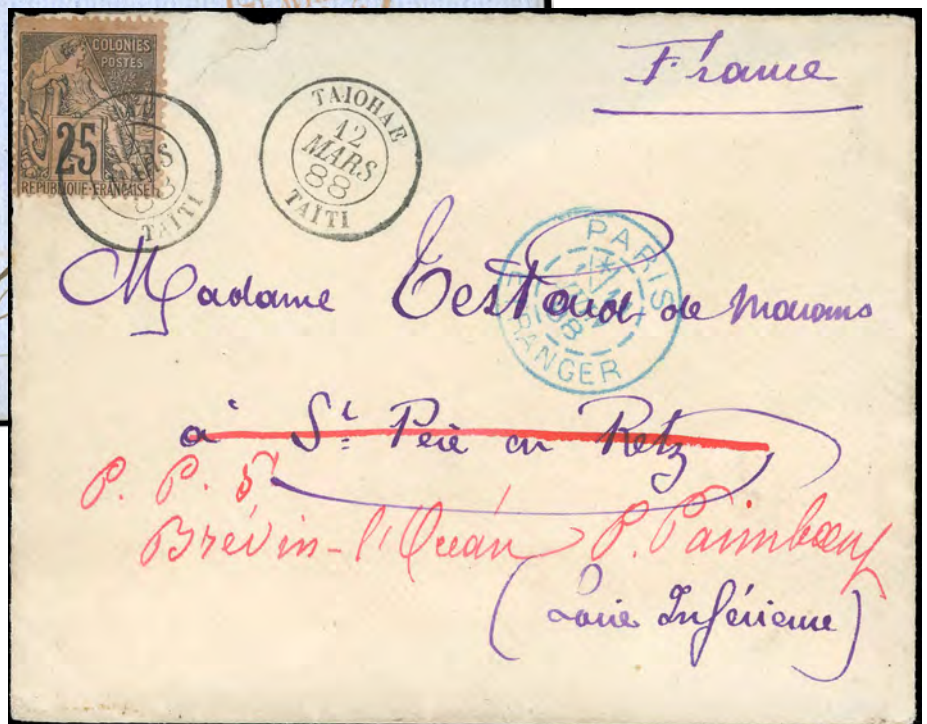 COLONIES
POSTES
25
REPUBLIQUE FRANÇAISE
TAITI
TAIOHAE
12
MARS
88
TAITI
France
PARIS
88
ETRANGER
Madame Testard de
à St Père en Retz
P. P. St
Brévin-l'Océan P. Paimbœuf
(Loire Inférieure)